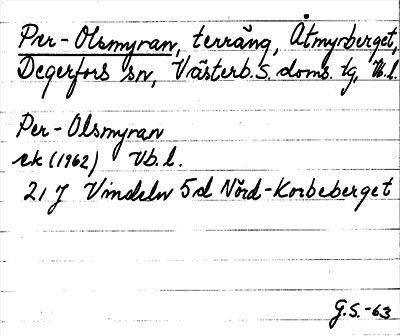 Per-Olsmyran, terräng, Åtmyrberget,
Degerfors sn, Västerb. S. doms. tg, Vb. l.
Per-Olsmyran
ek (1962) Vb. l.
21 J Vindeln 5 d Nörd-Korbeberget
G.S.-63